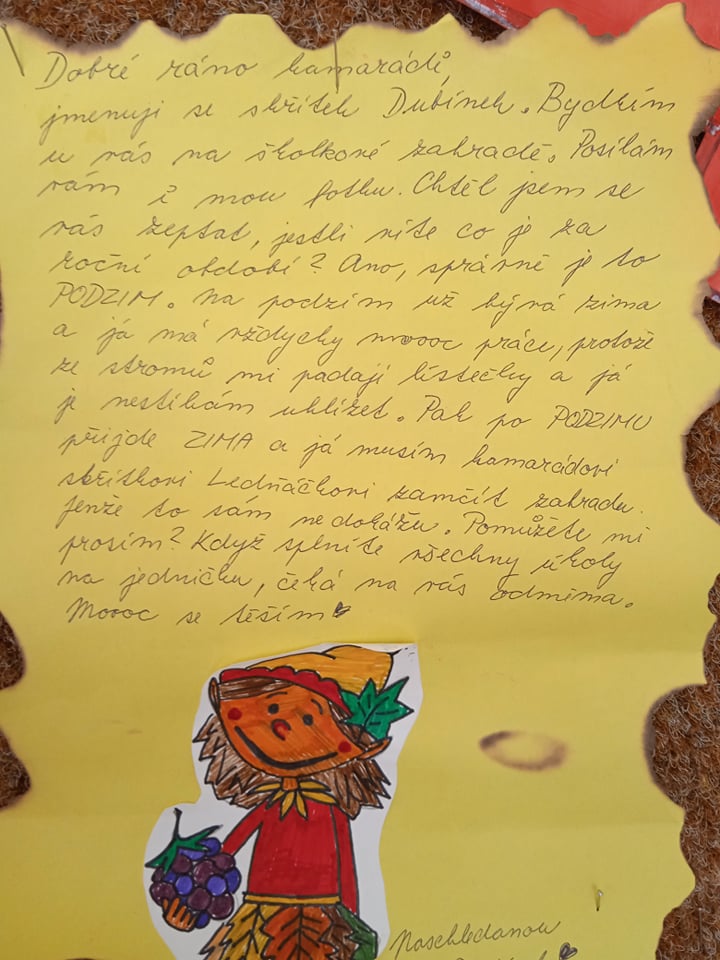 Dobré ráno kamarádi,
jmenuji se skřítek Dubínek. Bydlím
u vás na školkové zahradě. Posílám
vám i mou fotku. Chtěl jsem se
vás zeptat, jestli víte co je za
roční období? Ano, správně je to
PODZIM. Na podzim už bývá zima
a já má vždycky moooc práce, protože
ze stromů mi padají lístečky a já
je nestíhám uklízet. Pak po PODZIMU
přijde ZIMA a já musím kamarádovi
skřítkovi Ledňáčkovi zamčít zahradu.
Jenže to sám nedokážu. Pomůžete mi
prosím? Když splníte všechny úkoly
na jedničku, čeká na vás odměna.
Moooc se těším
Naschledanou